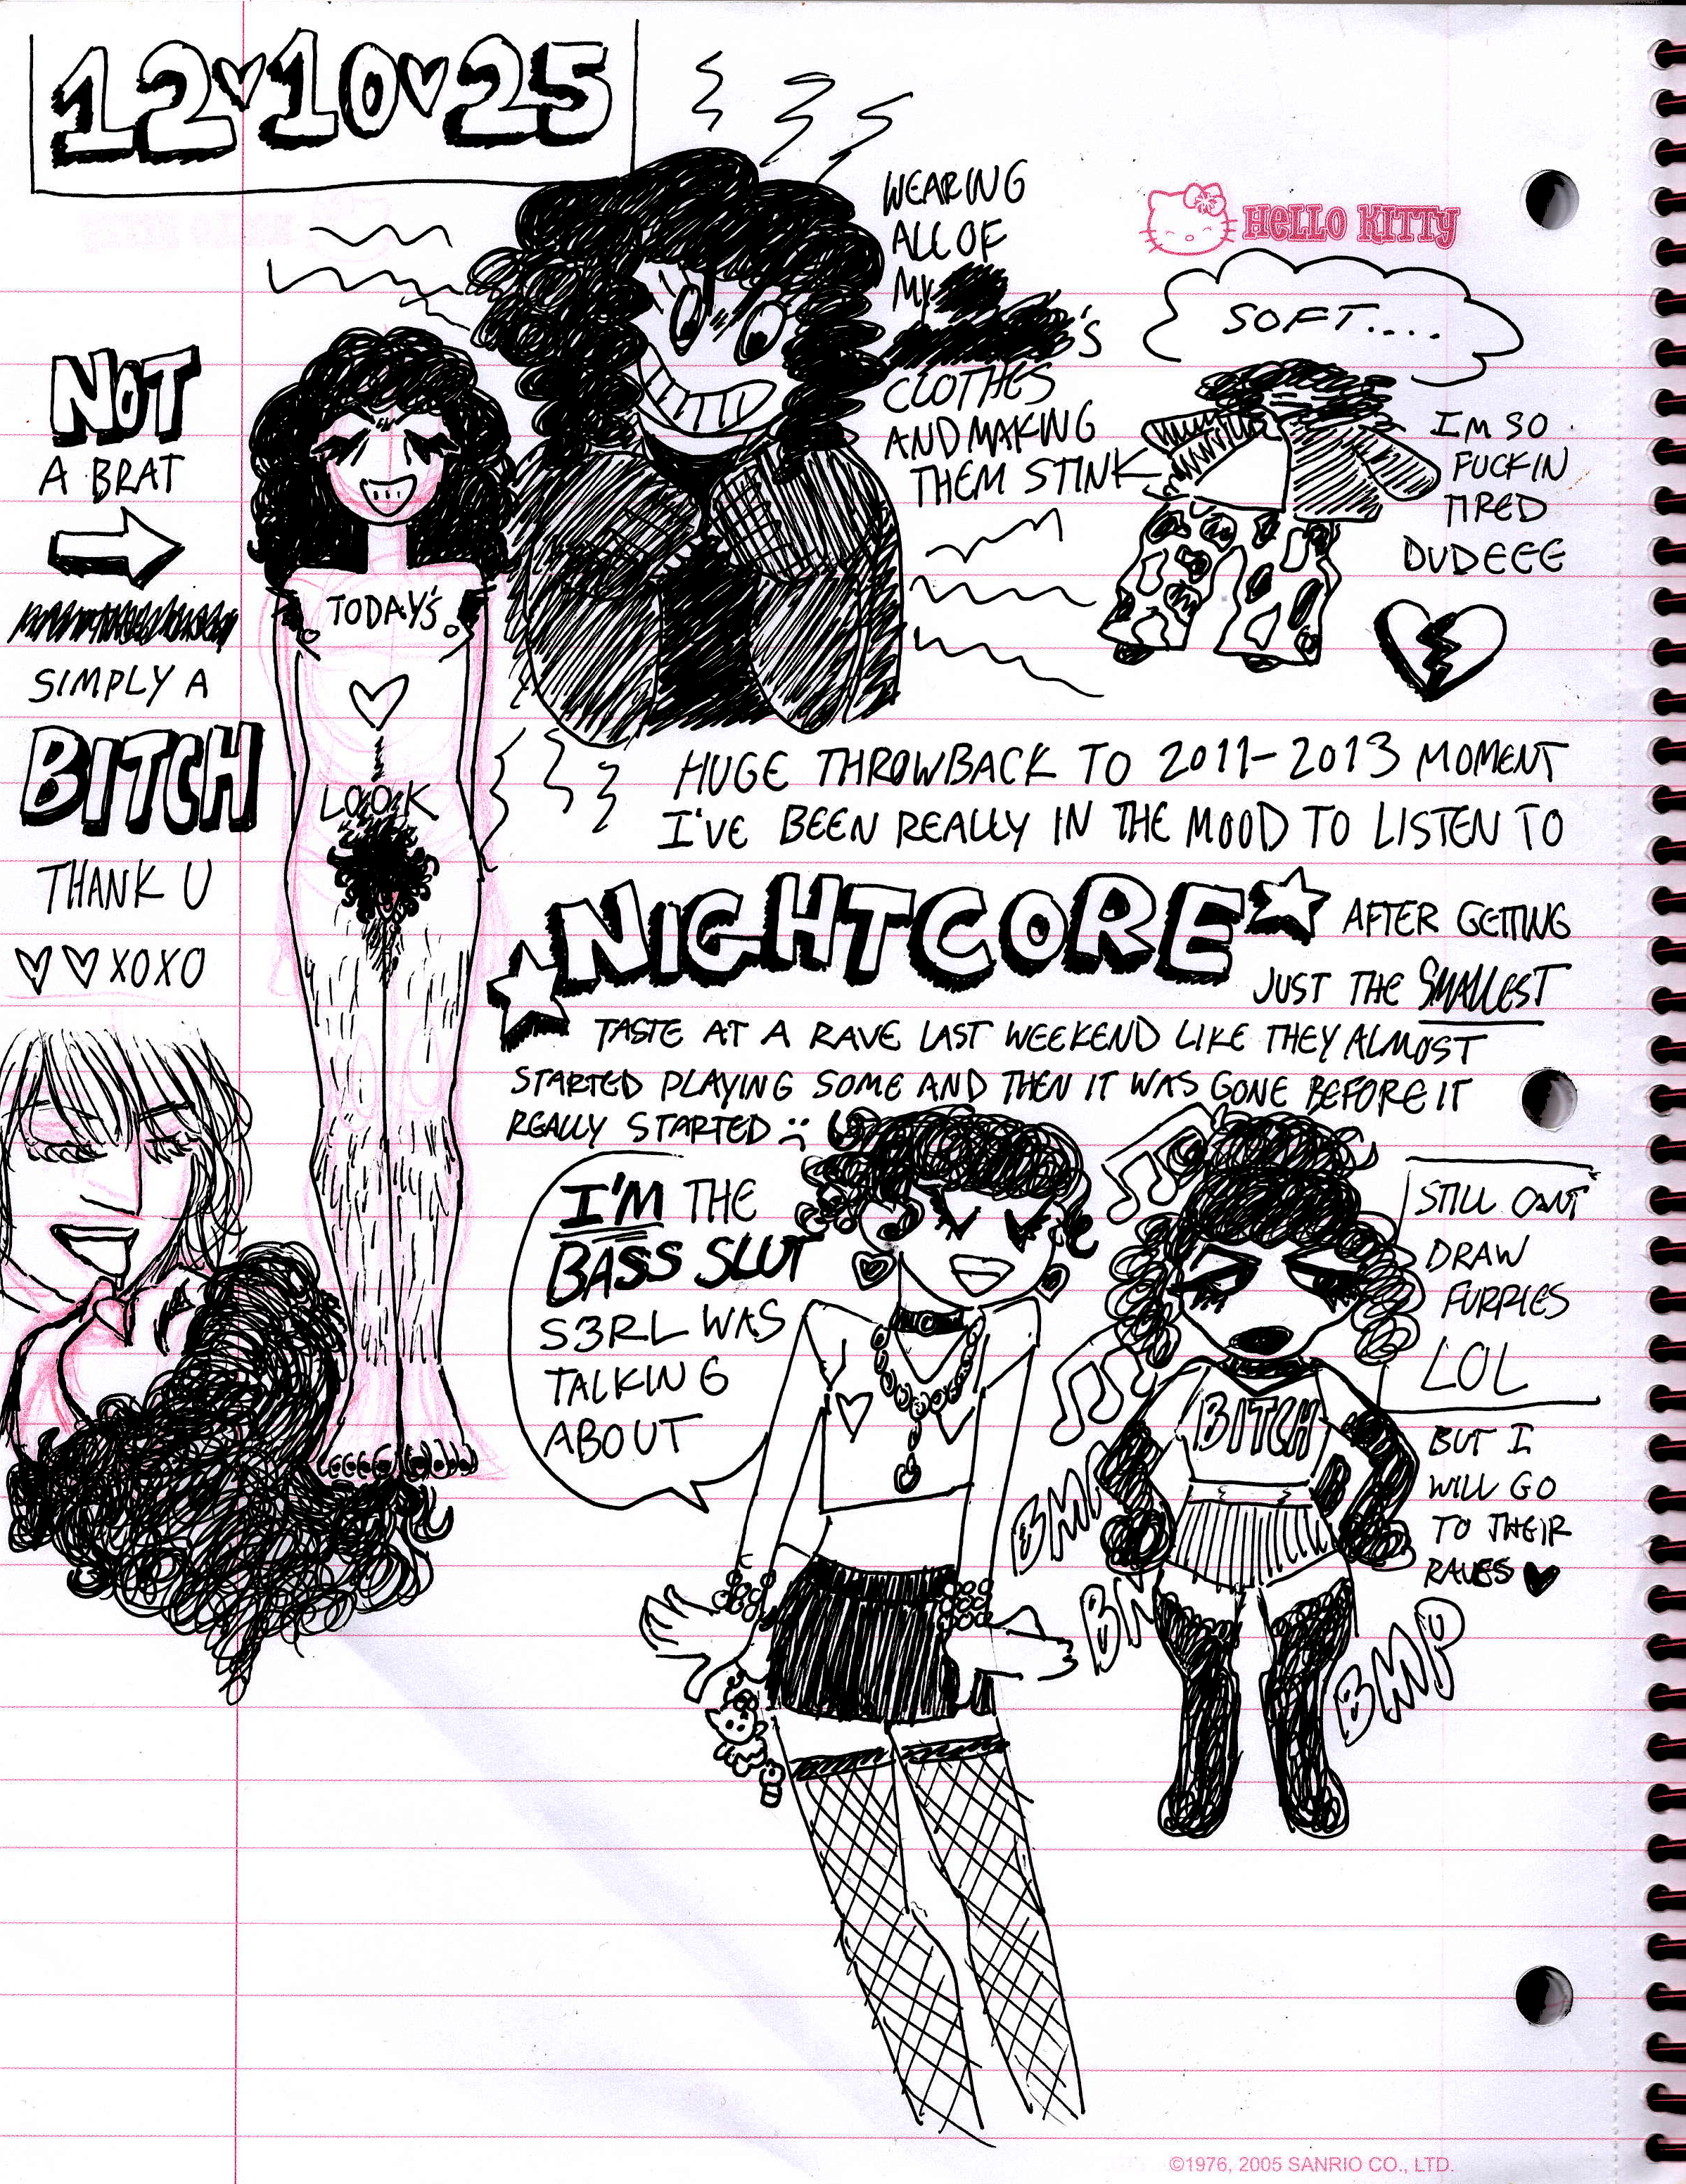 12♡10♡25
WEARING
ALL OF
MY
'S
CLOTHES
AND MAKING
THEM STINK
HELLO KITTY
SOFT....
I'M SO
FUCKIN
TIRED
DUDEEE
NOT
A BRAT
SIMPLY A
BITCH
THANK U
♡♡XOXO
TODAY'S
LOOK
HUGE THROWBACK TO 2011-2013 MOMENT
I'VE BEEN REALLY IN THE MOOD TO LISTEN TO
NIGHTCORE AFTER GETTING
JUST THE SMALLEST
TASTE AT A RAVE LAST WEEKEND LIKE THEY ALMOST
STARTED PLAYING SOME AND THEN IT WAS GONE BEFORE IT
REALLY STARTED :(
I'M THE
BASS SLUT
S3RL WAS
TALKING
ABOUT
STILL CAN'T
DRAW
FURRIES
LOL
BITCH
BUT I
WILL GO
TO THEIR
RAVES ♥
BMP
©1976, 2005 SANRIO CO., LTD.